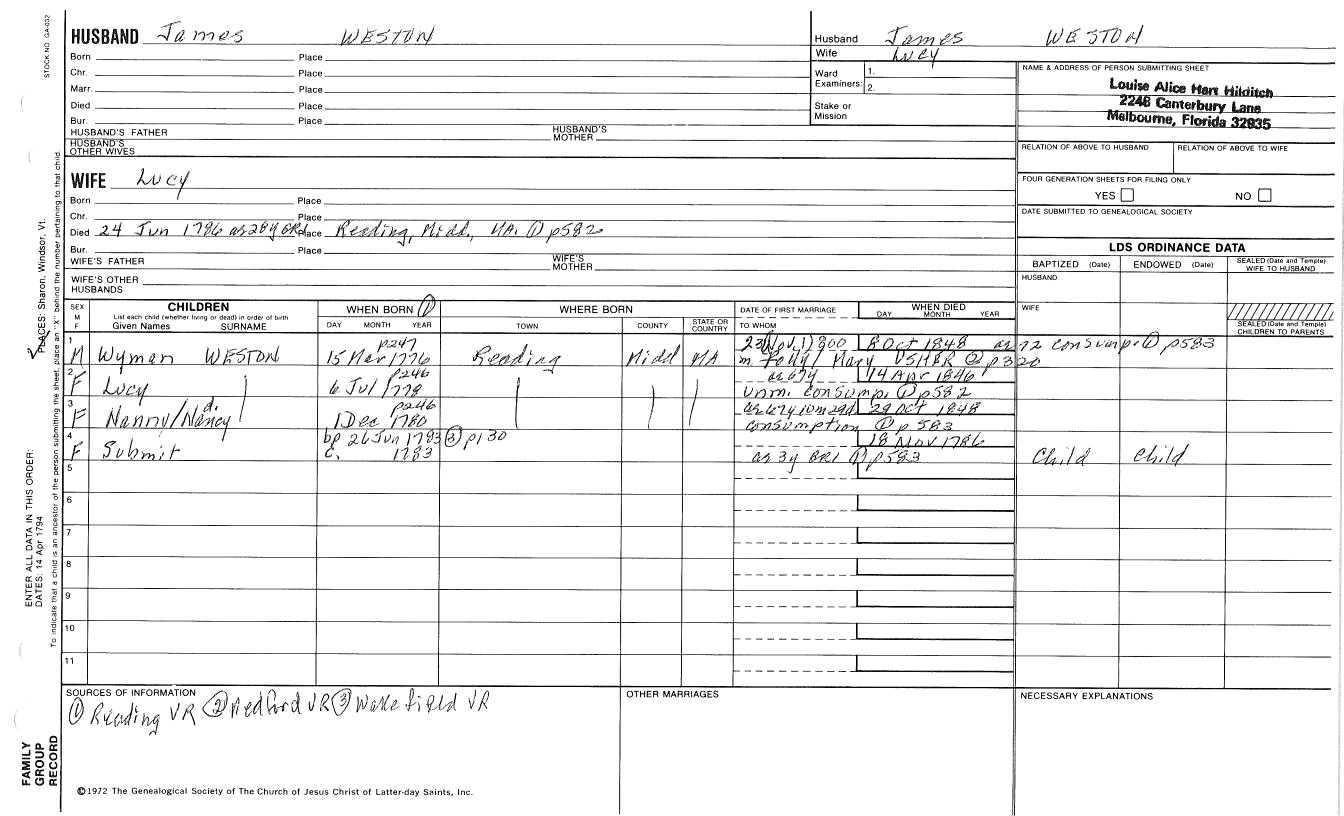 STOCK NO. GA-032
HUSBAND James WESTON
Born Place
Chr. Place
Marr. Place
Died Place
Bur. Place
HUSBAND'S FATHER HUSBAND'S MOTHER
HUSBAND'S OTHER WIVES
Husband James WESTON
Wife Lucy
Ward Examiners: 1.
2.
Stake or Mission
NAME & ADDRESS OF PERSON SUBMITTING SHEET
Louise Alice Hart Hilditch
2246 Canterbury Lane
Melbourne, Florida 32935
RELATION OF ABOVE TO HUSBAND RELATION OF ABOVE TO WIFE
FOUR GENERATION SHEETS FOR FILING ONLY
YES NO
DATE SUBMITTED TO GENEALOGICAL SOCIETY
WIFE Lucy
Born Place
Chr. Place
Died 24 Jun 1786 as 28y GR1 Place Reading, Midd., MA. ① p582
Bur. Place
WIFE'S FATHER WIFE'S MOTHER
WIFE'S OTHER HUSBANDS
LDS ORDINANCE DATA
BAPTIZED (Date) ENDOWED (Date) SEALED (Date and Temple) WIFE TO HUSBAND
HUSBAND
WIFE
SEALED (Date and Temple) CHILDREN TO PARENTS
SEX M F
CHILDREN
List each child (whether living or dead) in order of birth
Given Names SURNAME
WHEN BORN ①
DAY MONTH YEAR
WHERE BORN
TOWN COUNTY STATE OR COUNTRY
DATE OF FIRST MARRIAGE
TO WHOM
WHEN DIED
DAY MONTH YEAR
p247 23 Nov 1800 8 Oct 1848 as 72 consump. ① p583
1 M Wyman WESTON 15 Mar 1776 Reading Midd MA m. Polly/Mary USHER ② p320
p246 as 67y 14 Apr 1846
2 F Lucy 6 Jul 1778 unm. consump. ① p582
d. p246 as 67y 10m 29d 29 Oct 1848
3 F Nanny/Nancy 1 Dec 1780 consumption ① p583
bp 26 Jun 1783 ③ p130 18 Nov 1786
4 F Submit c. 1783 as 3y GR1 ① p583 Child Child
5
6
7
8
9
10
11
SOURCES OF INFORMATION
① Reading VR ② Medford VR ③ Wakefield VR
OTHER MARRIAGES
NECESSARY EXPLANATIONS
©1972 The Genealogical Society of The Church of Jesus Christ of Latter-day Saints, Inc.
FAMILY GROUP RECORD
ENTER ALL DATA IN THIS ORDER:
DATES: 14 Apr 1794
PLACES: Sharon, Windsor, Vt.
To indicate that a child is an ancestor of the person submitting the sheet, place an "X" behind the number pertaining to that child.